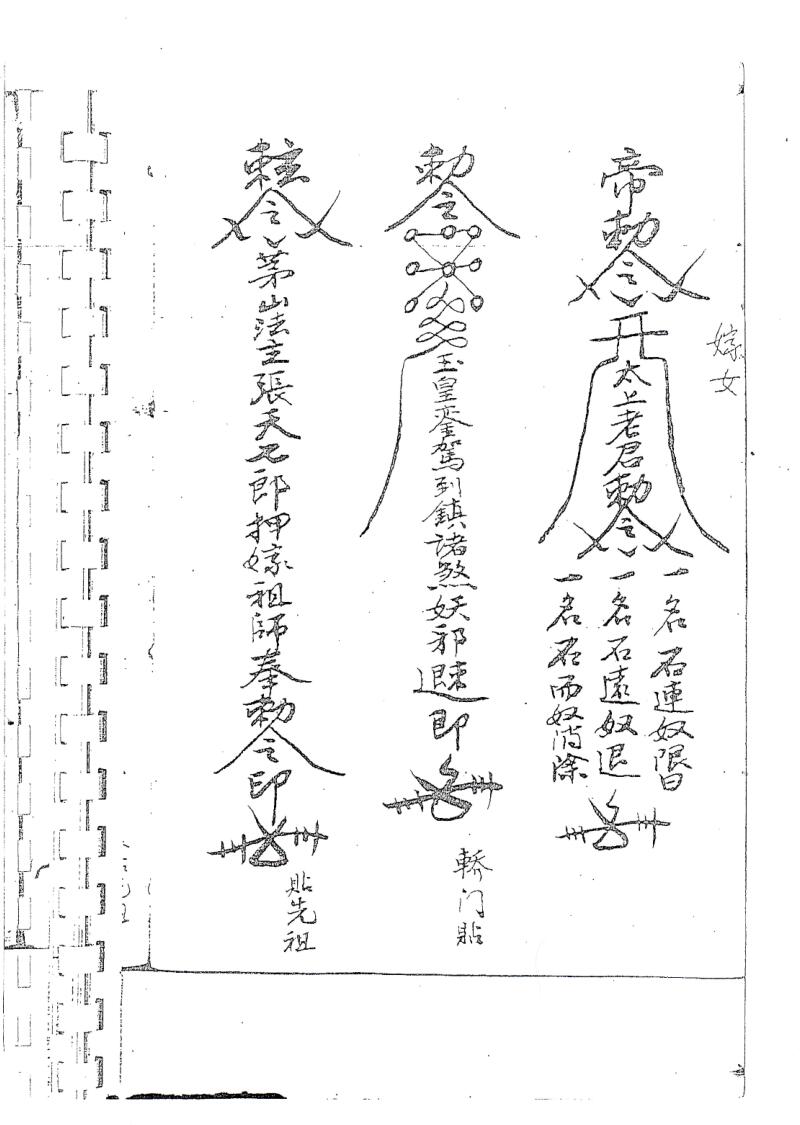 嫁女
帝勅令
太上老君勅令
一名石連奴
一名石遠奴退
一名石而奴消除
勅令
玉皇鑾駕到鎮諸煞妖邪退速即
轎门貼
令
茅山法主張天七郎押嫁祖師奉勅令印
貼先祖